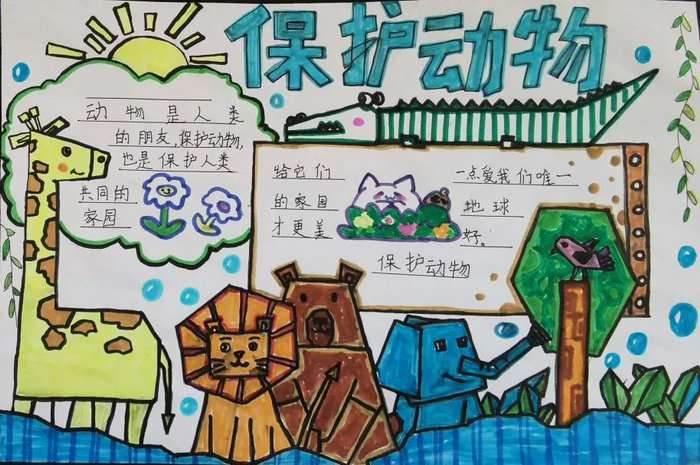 保护动物
动物是人类
的朋友,保护动物,
也是保护人类
共同的
家园
给它们 一点爱我们唯一
的家园 地球
才更美 好。
保护动物